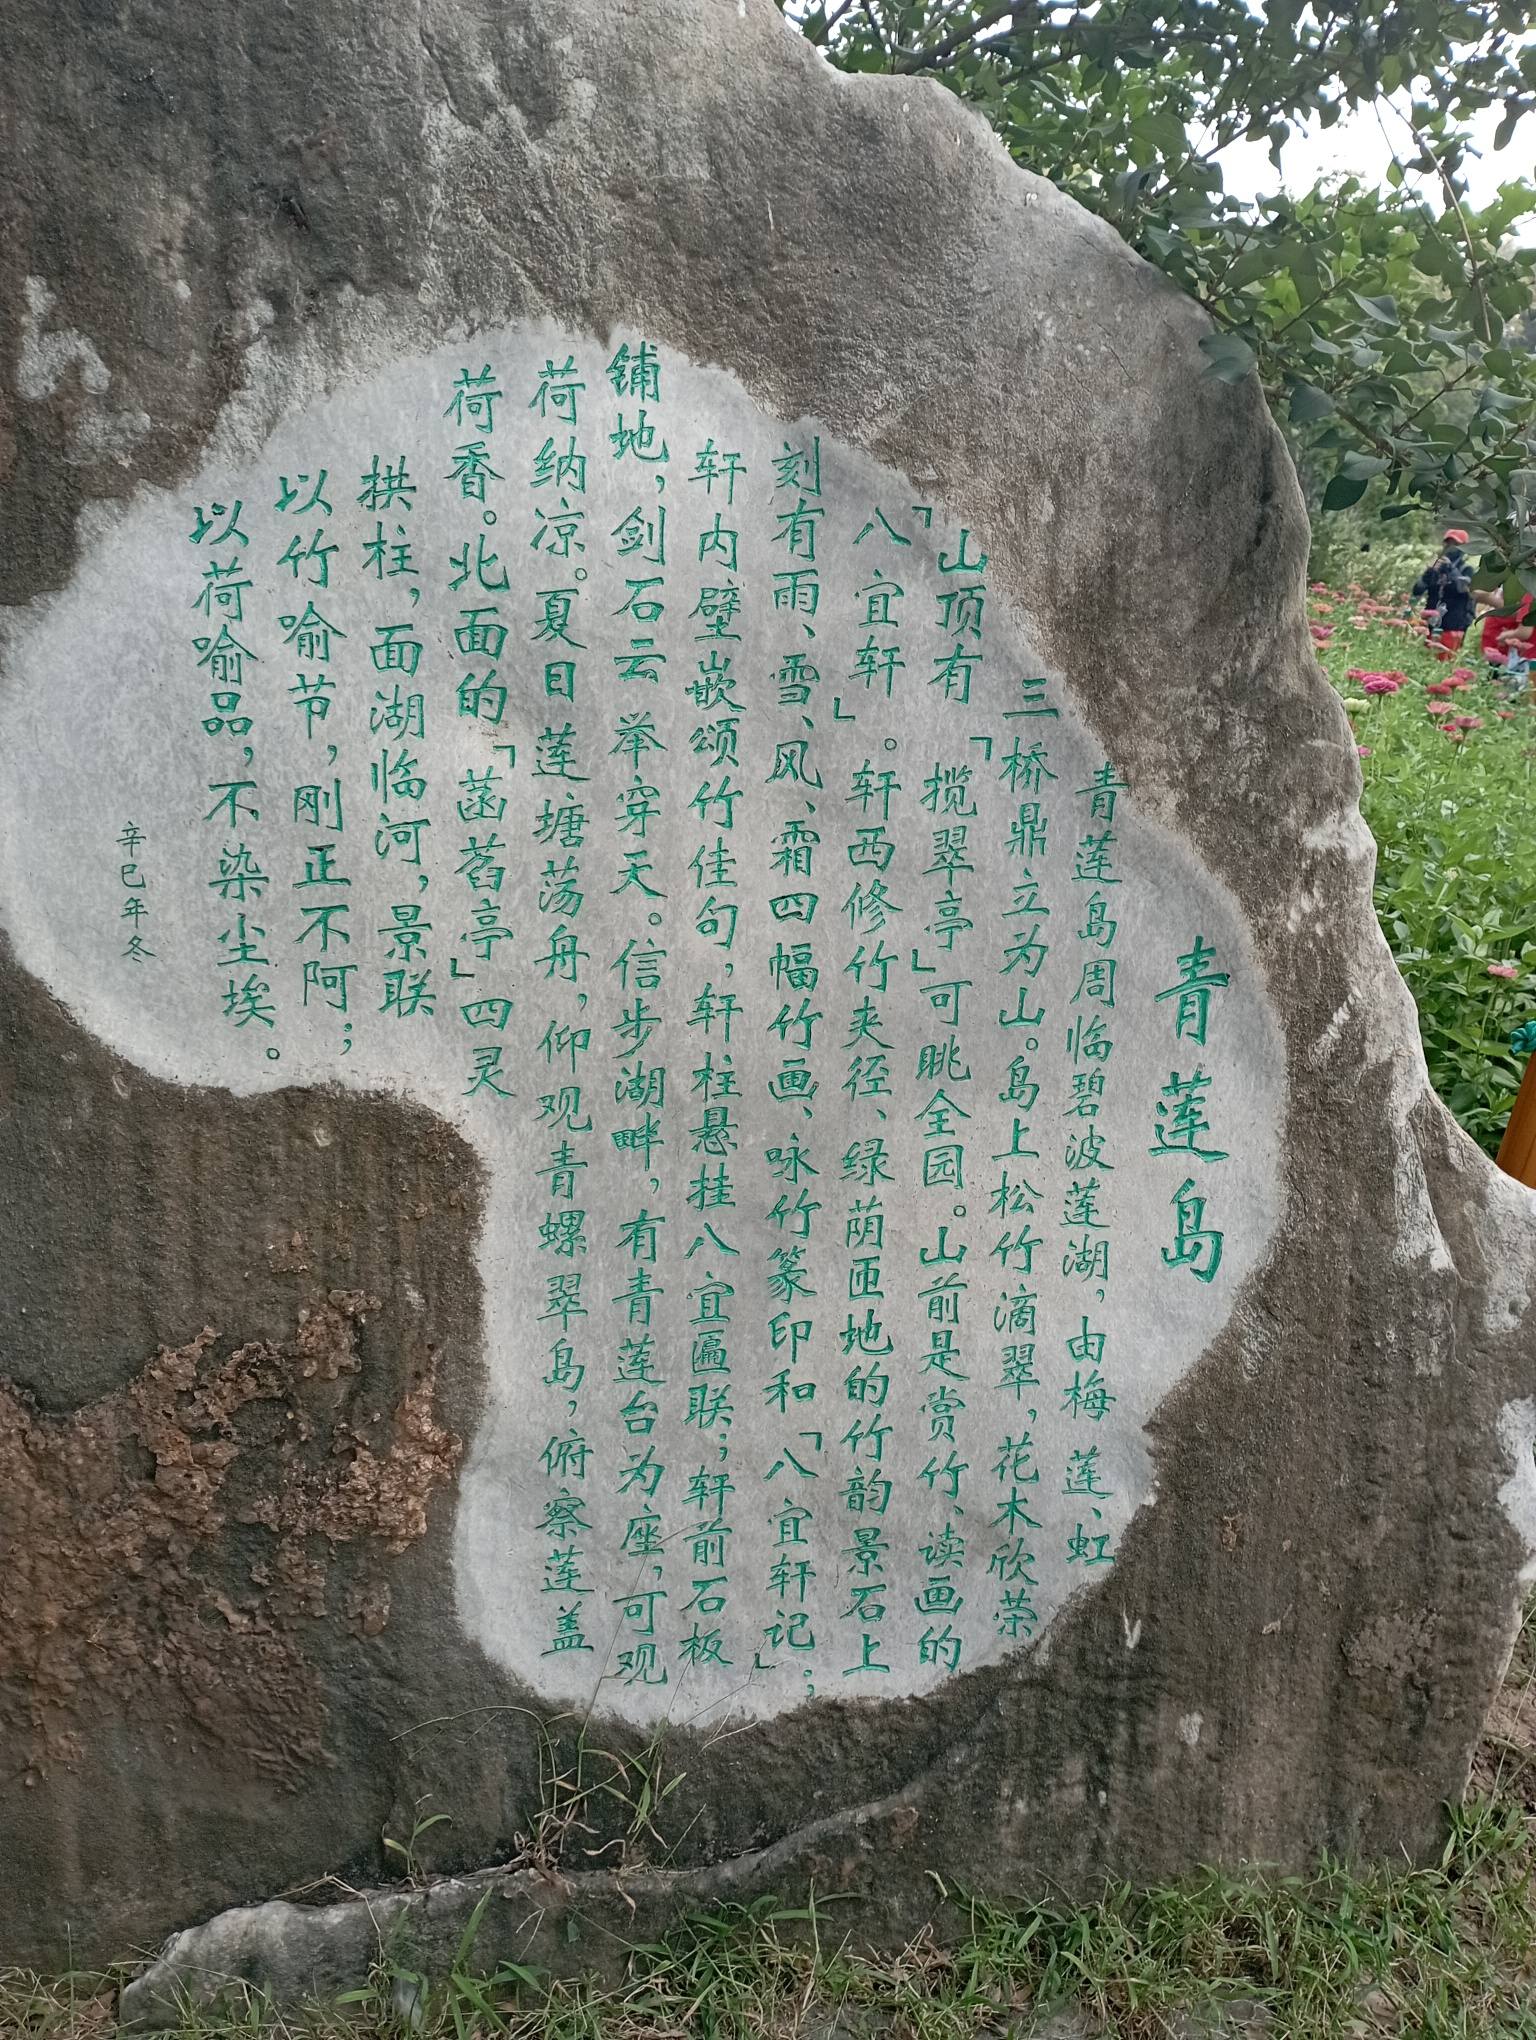 青莲岛
青莲岛周临碧波莲湖，由梅莲、虹
三桥鼎立为山。岛上松竹滴翠，花木欣荣
山顶有「揽翠亭」可眺全园。山前是赏竹、读画的
「八宜轩」。轩西修竹夹径、绿荫匝地的竹韵景石上
刻有雨、雪、风、霜四幅竹画、咏竹篆印和「八宜轩记」；
轩内壁嵌颂竹佳句，轩柱悬挂八宜匾联；轩前石板
铺地，剑石云举穿天。信步湖畔，有青莲台为座，可观
荷纳凉。夏日莲塘荡舟，仰观青螺翠岛，俯察莲盖
荷香。北面的「菡萏亭」四灵
拱柱，面湖临河，景联
以竹喻节，刚正不阿；
以荷喻品，不染尘埃。
辛巳年冬